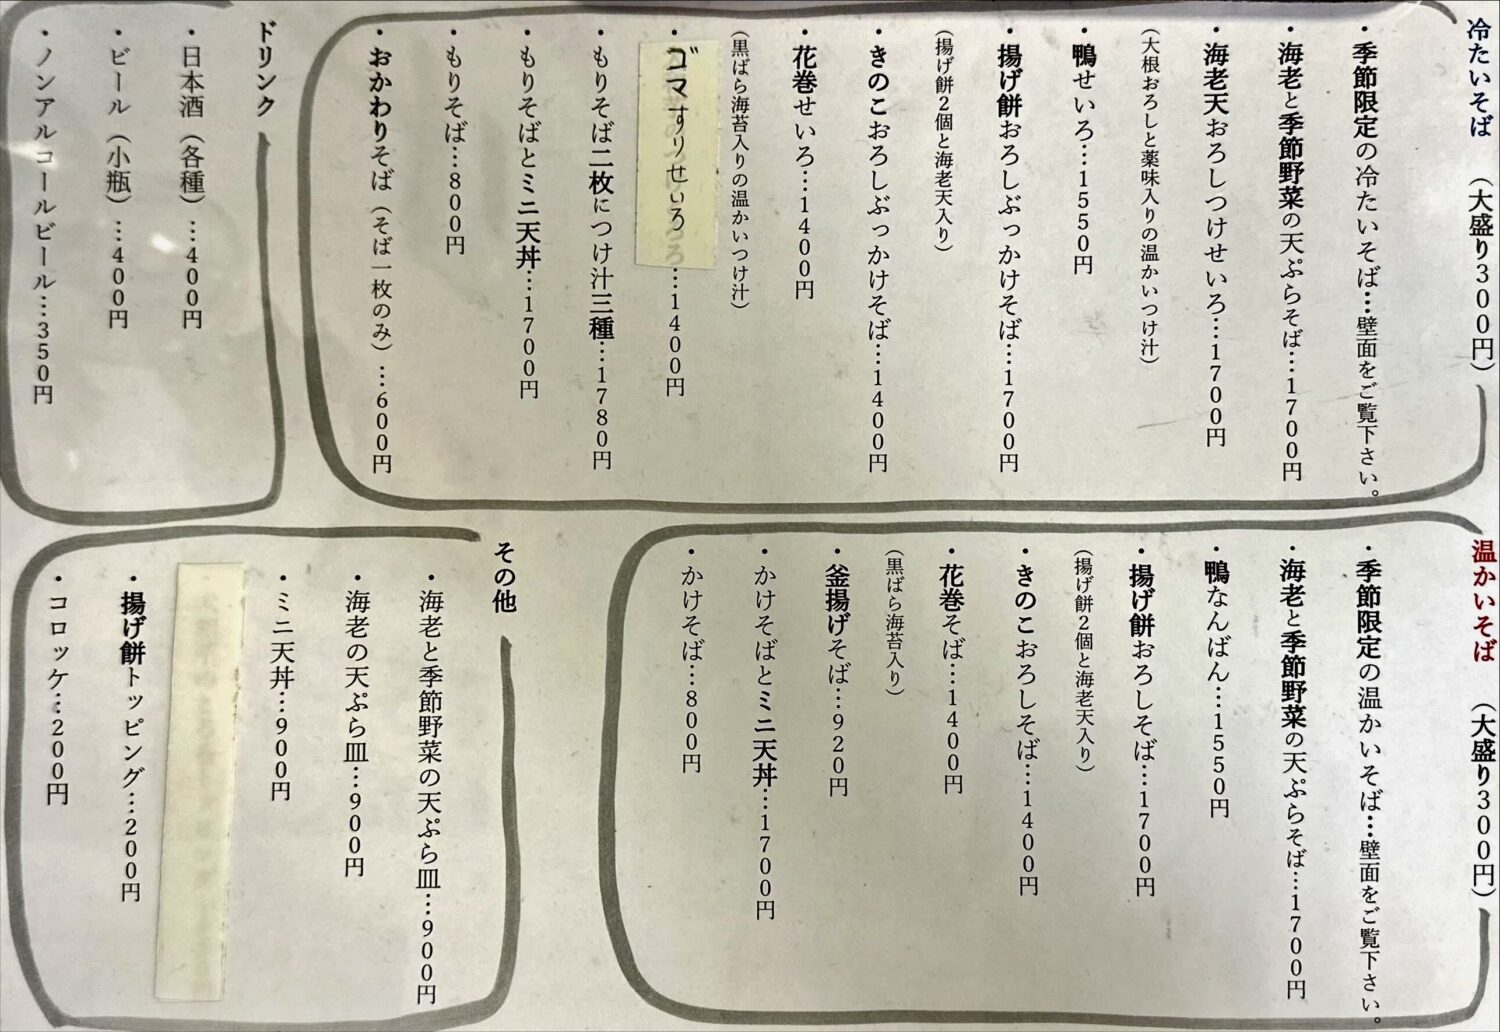 冷たいそば （大盛り300円）
・季節限定の冷たいそば…壁面をご覧下さい。
・海老と季節野菜の天ぷらそば…1700円
・海老天おろしつけせいろ…1700円
（大根おろしと薬味入りの温かいつけ汁）
・鴨せいろ…1550円
・揚げ餅おろしぶっかけそば…1700円
（揚げ餅2個と海老天入り）
・きのこおろしぶっかけそば…1400円
・花巻せいろ…1400円
（黒ばら海苔入りの温かいつけ汁）
・ゴマすりせいろ…1400円
・もりそば二枚につけ汁三種…1780円
・もりそばとミニ天丼…1700円
・もりそば…800円
・おかわりそば（そば一枚のみ）…600円
ドリンク
・日本酒（各種）…400円
・ビール（小瓶）…400円
・ノンアルコールビール…350円
温かいそば （大盛り300円）
・季節限定の温かいそば…壁面をご覧下さい。
・海老と季節野菜の天ぷらそば…1700円
・鴨なんばん…1550円
・揚げ餅おろしそば…1700円
（揚げ餅2個と海老天入り）
・きのこおろしそば…1400円
・花巻そば…1400円
（黒ばら海苔入り）
・釜揚げそば…920円
・かけそばとミニ天丼…1700円
・かけそば…800円
その他
・海老と季節野菜の天ぷら皿…900円
・海老の天ぷら皿…900円
・ミニ天丼…900円
・揚げ餅トッピング…200円
・コロッケ…200円